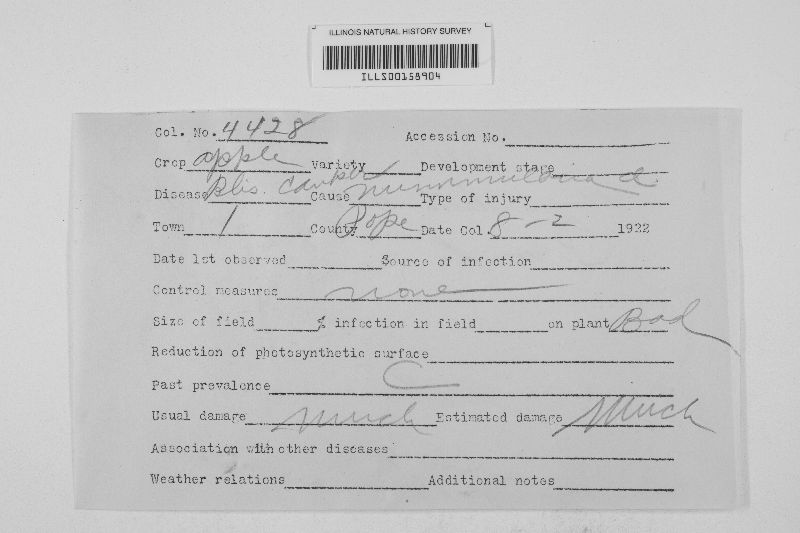 ILLINOIS NATURAL HISTORY SURVEY
ILLS00158904
Col. No. 4428 Accession No.
Crop apple Variety Development stage
Disease Blis. Canker Cause Nummularia d Type of injury
Town 1 County Pope Date Col. 8-2 1922
Date 1st observed Source of infection
Control measures none
Size of field % infection in field on plant Bad
Reduction of photosynthetic surface
Past prevalence C
Usual damage much Estimated damage Much
Association with other diseases
Weather relations Additional notes